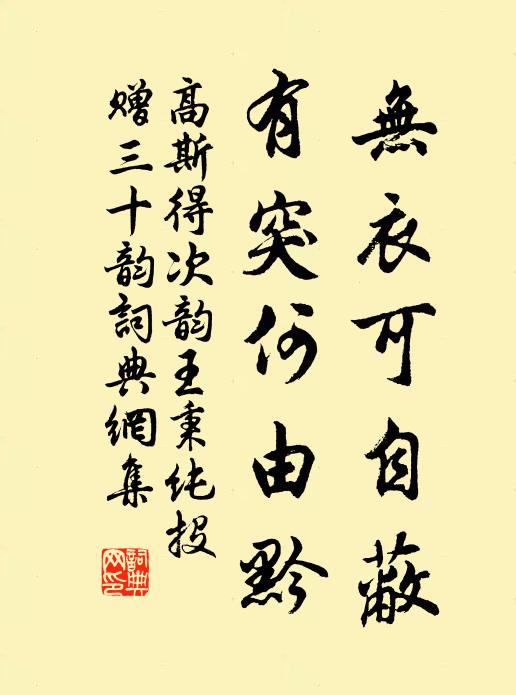 無衣可自蔽
有突何由黔
高斯得次韵王秉纯投
赠三十韵詞典網集
詞典网印